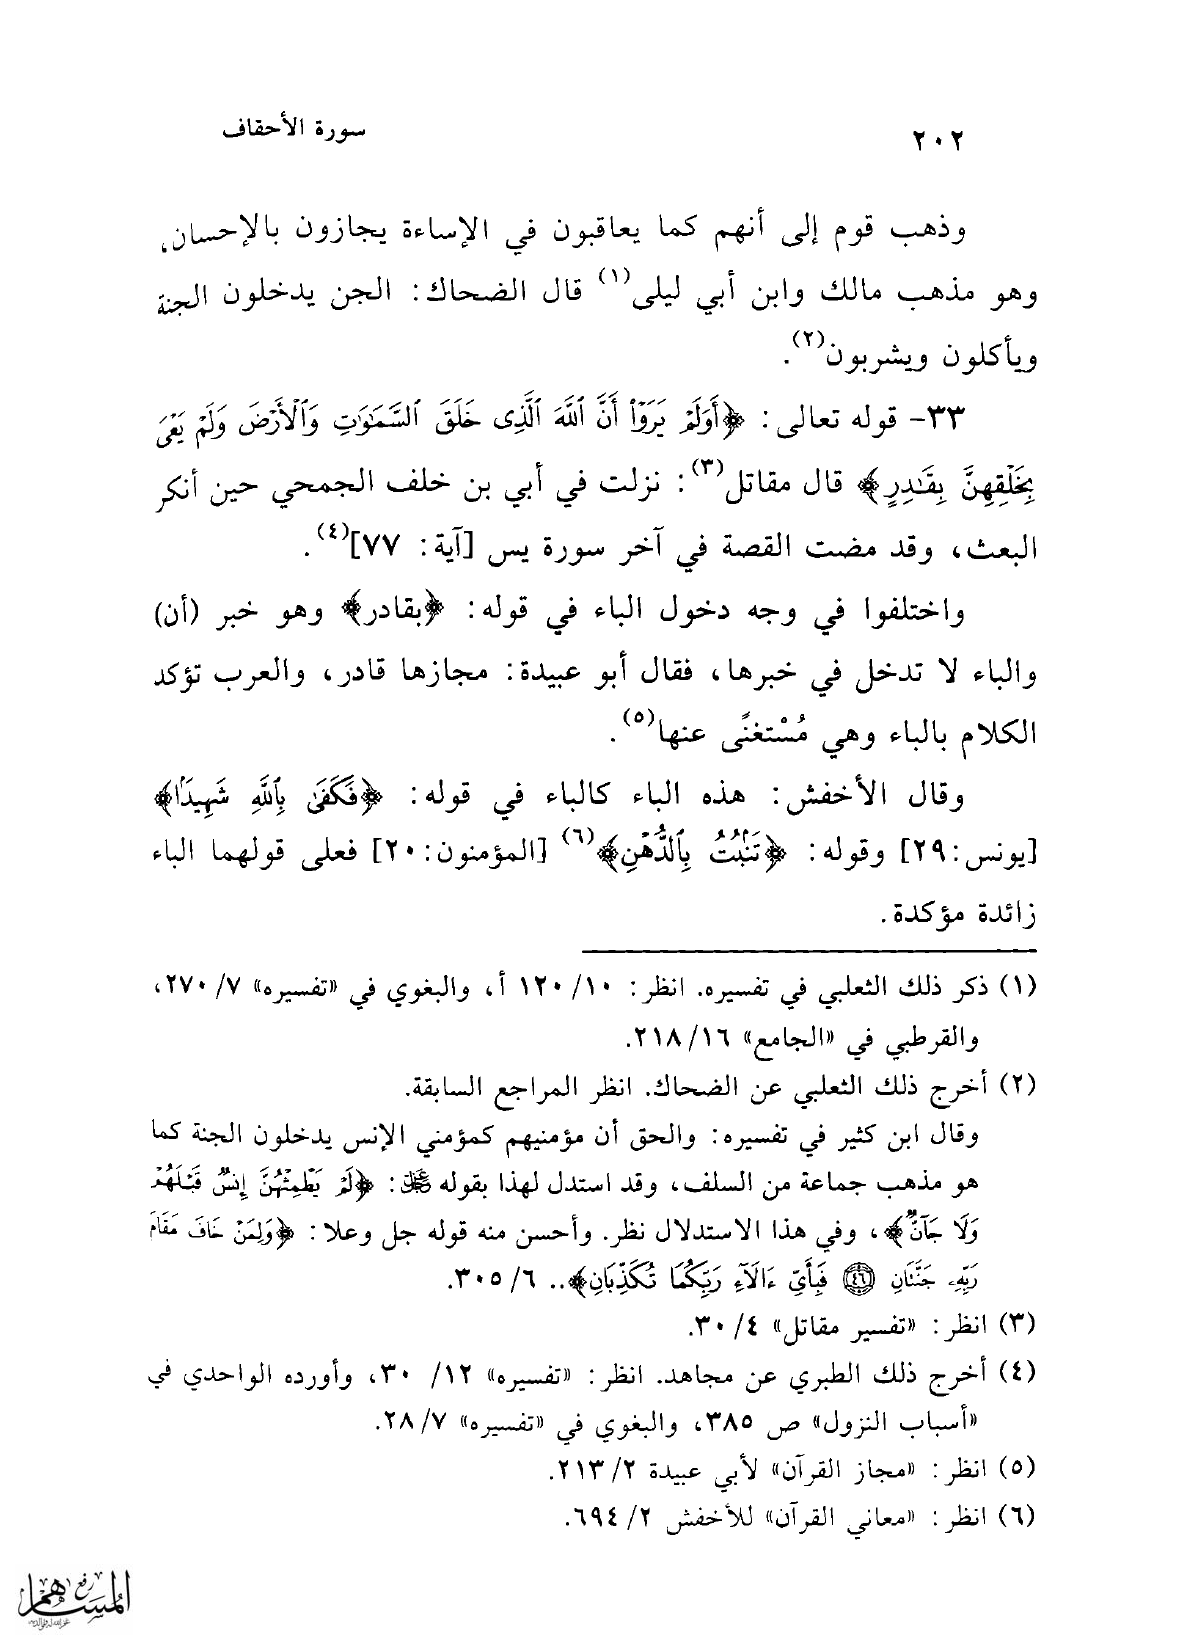 ٢٠٢ سورة الأحقاف
وذهب قوم إلى أنهم كما يعاقبون في الإساءة يجازون بالإحسان،
وهو مذهب مالك وابن أبي ليلى(١) قال الضحاك: الجن يدخلون الجنة
ويأكلون ويشربون(٢).
٣٣- قوله تعالى: ﴿أَوَلَمْ يَرَوْا۟ أَنَّ ٱللَّهَ ٱلَّذِى خَلَقَ ٱلسَّمَٰوَٰتِ وَٱلْأَرْضَ وَلَمْ يَعْىَ
بِخَلْقِهِنَّ بِقَٰدِرٍ﴾ قال مقاتل(٣): نزلت في أبي بن خلف الجمحي حين أنكر
البعث، وقد مضت القصة في آخر سورة يس [آية: ٧٧](٤).
واختلفوا في وجه دخول الباء في قوله: ﴿بقادر﴾ وهو خبر (أن)
والباء لا تدخل في خبرها، فقال أبو عبيدة: مجازها قادر، والعرب تؤكد
الكلام بالباء وهي مُسْتغنًى عنها(٥).
وقال الأخفش: هذه الباء كالباء في قوله: ﴿فَكَفَىٰ بِٱللَّهِ شَهِيدًۢا﴾
[يونس:٢٩] وقوله: ﴿تَنۢبُتُ بِٱلدُّهْنِ﴾(٦) [المؤمنون:٢٠] فعلى قولهما الباء
زائدة مؤكدة.
(١) ذكر ذلك الثعلبي في تفسيره. انظر: ١٠/ ١٢٠ أ، والبغوي في «تفسيره» ٧/ ٢٧٠،
والقرطبي في «الجامع» ١٦/ ٢١٨.
(٢) أخرج ذلك الثعلبي عن الضحاك. انظر المراجع السابقة.
وقال ابن كثير في تفسيره: والحق أن مؤمنيهم كمؤمني الإنس يدخلون الجنة كما
هو مذهب جماعة من السلف، وقد استدل لهذا بقوله ﷿: ﴿لَمْ يَطْمِثْهُنَّ إِنسٌ قَبْلَهُمْ
وَلَا جَآنٌّ﴾، وفي هذا الاستدلال نظر. وأحسن منه قوله جل وعلا: ﴿وَلِمَنْ خَافَ مَقَامَ
رَبِّهِۦ جَنَّتَانِ ٤٦ فَبِأَىِّ ءَالَآءِ رَبِّكُمَا تُكَذِّبَانِ﴾.. ٦/ ٣٠٥.
(٣) انظر: «تفسير مقاتل» ٤/ ٣٠.
(٤) أخرج ذلك الطبري عن مجاهد. انظر: «تفسيره» ١٢/ ٣٠، وأورده الواحدي في
«أسباب النزول» ص ٣٨٥، والبغوي في «تفسيره» ٧/ ٢٨.
(٥) انظر: «مجاز القرآن» لأبي عبيدة ٢/ ٢١٣.
(٦) انظر: «معاني القرآن» للأخفش ٢/ ٦٩٤.